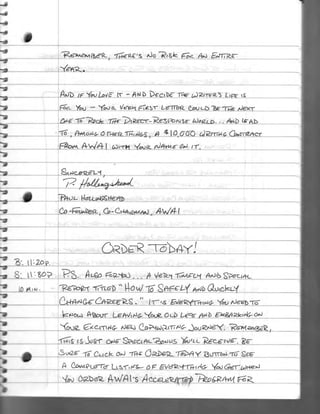 REMEMBER, THERE'S NO RISK FOR AN ENTIRE
YEAR.
AND IF YOU LOVE IT - AND DECIDE THE WRITER'S LIFE IS
FOR YOU - YOUR VERY FIRST LETTER COULD BE THE NEXT
ONE TO ROCK THE DIRECT-RESPONSE WORLD... AND LEAD
TO, AMONG OTHER THINGS, A $10,000 WRITING CONTRACT
FROM AWAI WITH YOUR NAME ON IT.
SINCERELY,
P. Hollingshead
PAUL HOLLINGSHEAD
CO-FOUNDER, CO-CHAIRMAN, AWAI
ORDER TODAY!
B: 11:20P
S: 11:30P PS. ALSO FOR YOU... A VERY TIMELY AND SPECIAL
10 MIN. REPORT TITLED "HOW TO SAFELY AND QUICKLY
CHANGE CAREERS." IT'S EVERYTHING YOU NEED TO
KNOW ABOUT LEAVING YOUR OLD LIFE AND EMBARKING ON
YOUR EXCITING NEW COPYWRITING JOURNEY. REMEMBER,
THIS IS JUST ONE SPECIAL BONUS YOU'LL RECEIVE. BE
SURE TO CLICK ON THE ORDER TODAY BUTTON TO SEE
A COMPLETE LISTING OF EVERYTHING YOU GET WHEN
YOU ORDER AWAI'S ACCELERATED PROGRAM FOR